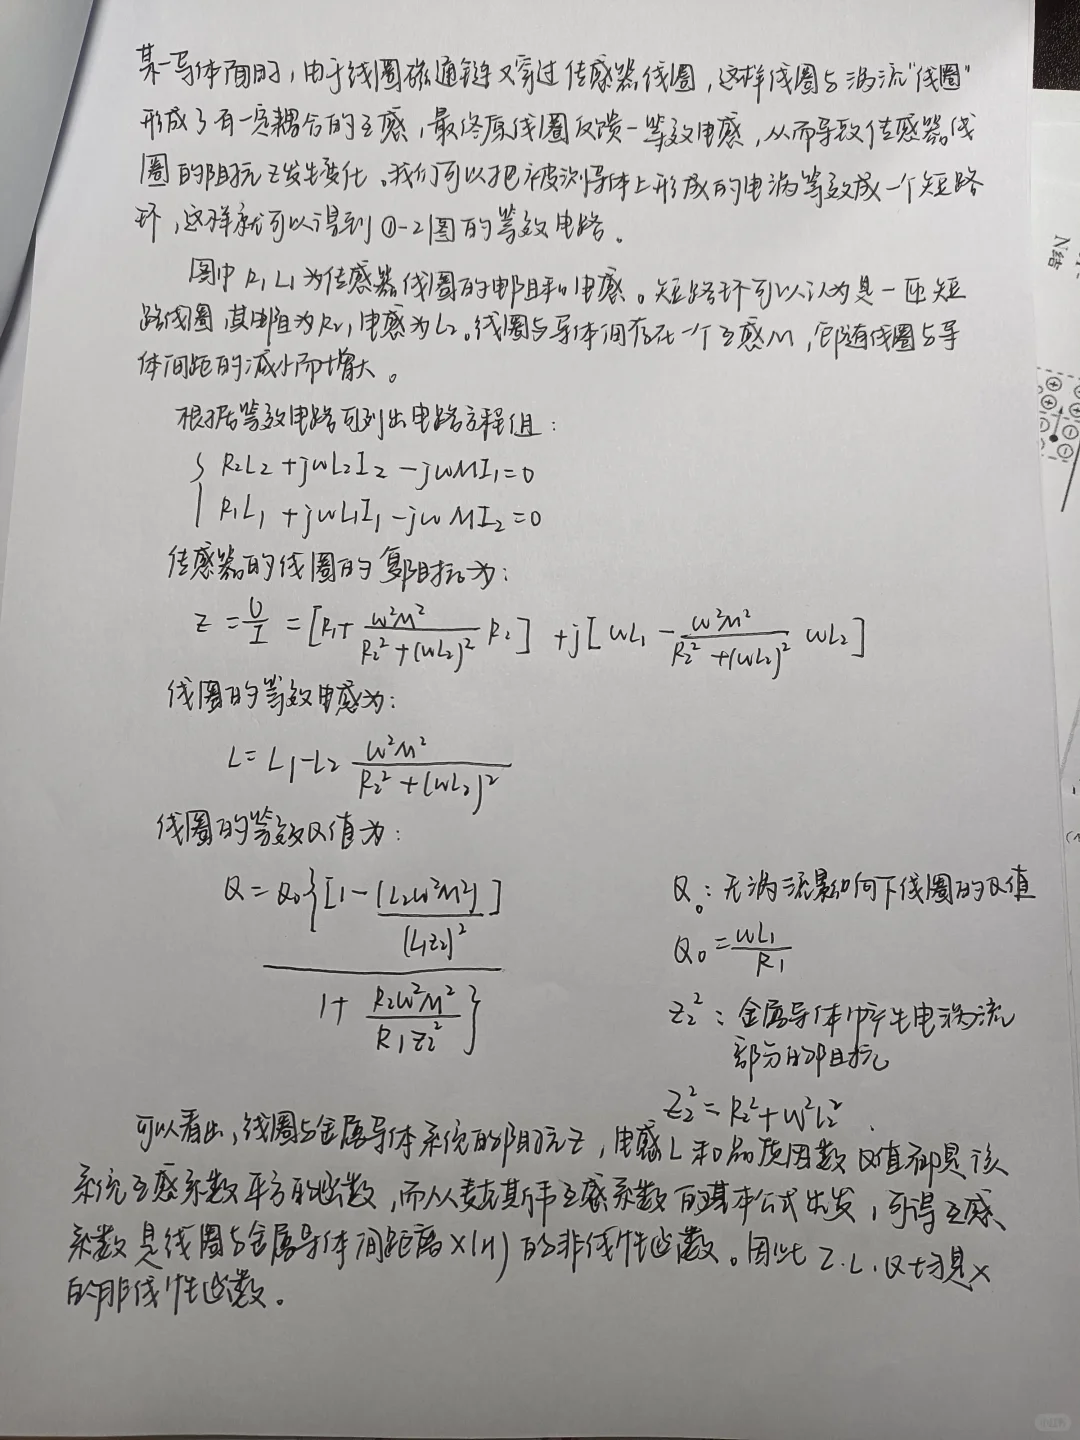 某一导体阻的，由于线圈磁通链又穿过传感器线圈，这样线圈与涡流“线圈”
形成了有一定耦合的互感，最终原线圈反馈一等效电感，从而导致传感器线
圈的阻抗Z发生变化。我们可以把被测导体上形成的电涡等效成一个短路
环，这样就可以得到①-2图的等效电路。
图中R₁L₁为传感器线圈的电阻和电感。短路环可以认为是一匝短
路线圈，其电阻为R₂，电感为L₂。线圈与导体间存在一个互感M，它随线圈与导
体间距的减小而增大。
根据等效电路可列出电路方程组：
{ R₂L₂+jωL₂I₂-jωMI₁=0
R₁L₁+jωL₁I₁-jωMI₂=0
传感器的线圈的复阻抗为：
Z=U/I=[R₁+ω²M²/(R₂²+(ωL₂)²) R₂]+j[ωL₁-ω²M²/(R₂²+(ωL₂)²) ωL₂]
线圈的等效电感为：
L=L₁-L₂ ω²M²/(R₂²+(ωL₂)²)
线圈的等效Q值为：
Q=Q₀{[1-(L₂ω²M²)/(L₁Z₂)²]/1+R₂ω²M²/R₁Z₂²}
Q₀：无涡流影响下线圈的Q值
Q₀=ωL₁/R₁
Z₂²：金属导体中产生电涡流
部分的阻抗
Z₂²=R₂²+ω²L₂².
可以看出，线圈与金属导体系统的阻抗Z，电感L和品质因数Q值都是该
系统互感系数平方的函数，而从麦克斯韦互感系数的基本公式出发，可得互感
系数是线圈与金属导体间距离X(H)的非线性函数。因此Z.L.Q均是X
的非线性函数。
N结
小红书